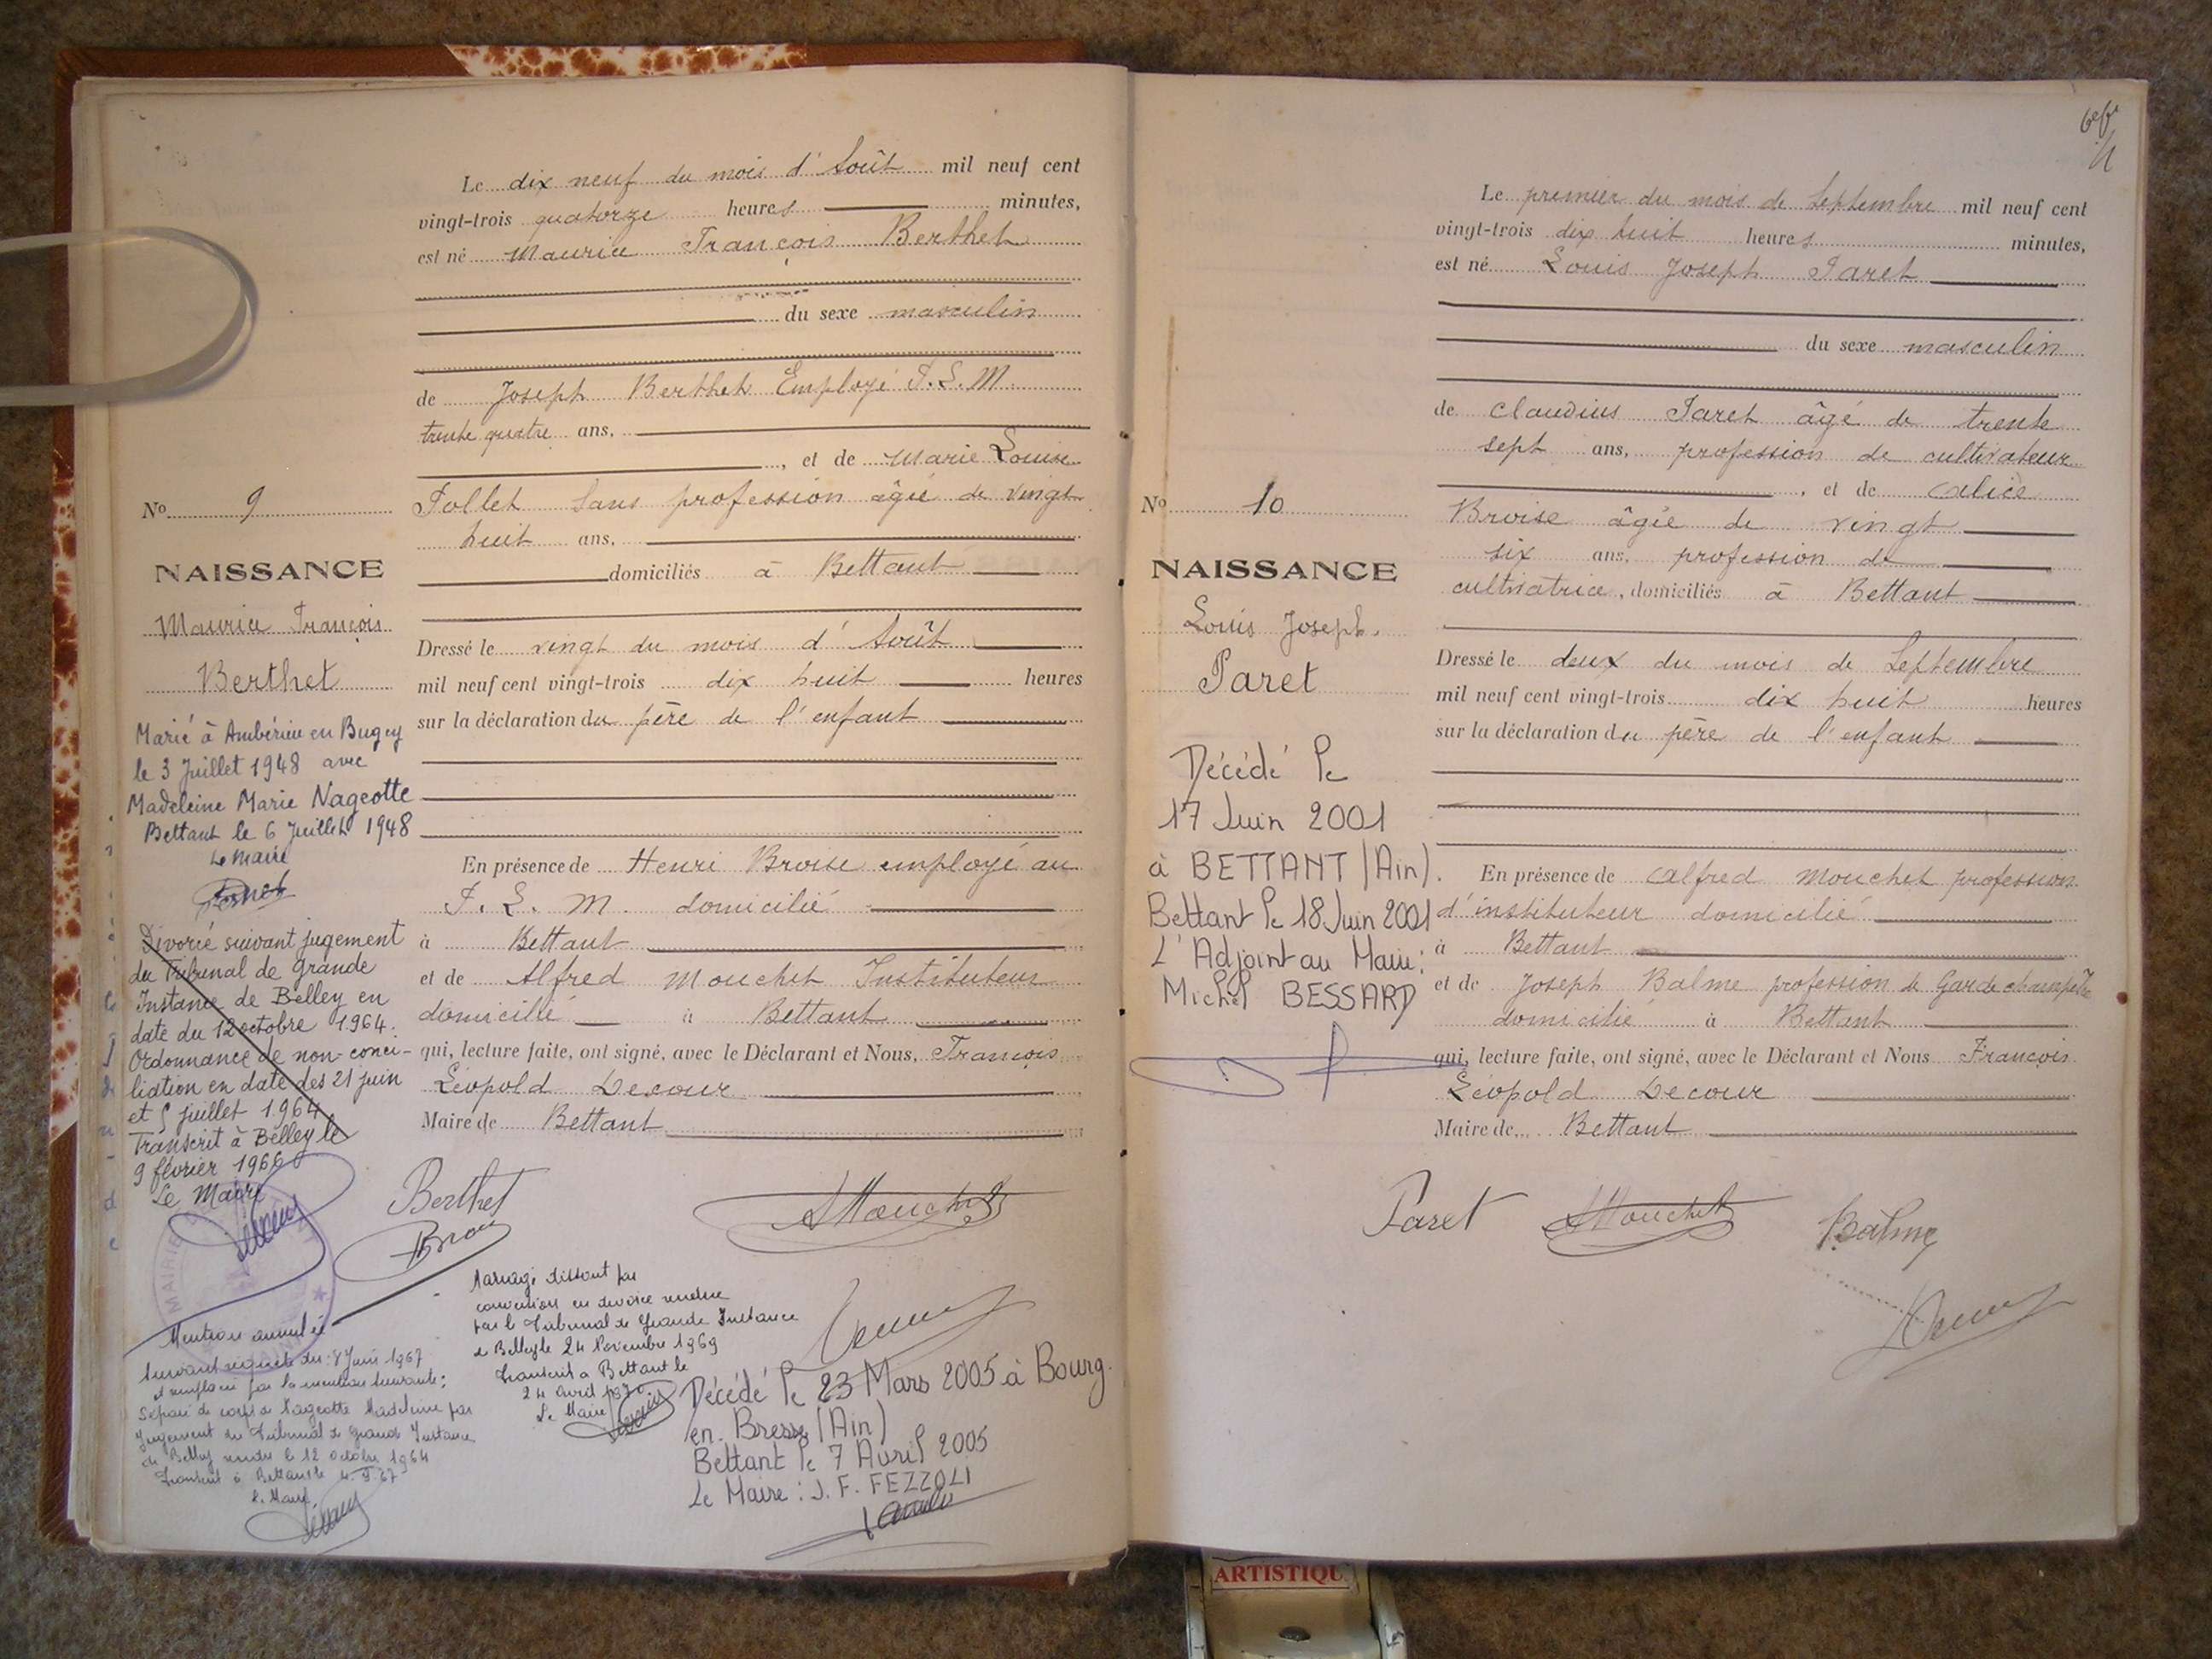 Le dix neuf du mois d'Août mil neuf cent
vingt-trois quatorze heures minutes,
est né Maurice François Berthet
du sexe masculin
de Joseph Berthet Employé
trente quatre ans,
, et de Marie Louise
Follet Sans profession âgée de vingt
huit ans,
domiciliés à Bettant
Dressé le vingt du mois d'Août
mil neuf cent vingt-trois dix huit heures
sur la déclaration du père de l'enfant
En présence de Henri Broise employé au
domicilié
à Bettant
et de Alfred Mouchet Instituteur
domicilié à Bettant
qui, lecture faite, ont signé, avec le Déclarant et Nous, François
Léopold Decour
Maire de Bettant
No 9
NAISSANCE
Maurice François
Berthet
Marié à Ambérieu en Bugey
le 3 Juillet 1948 avec
Madeleine Marie Nageotte
Bettant le 6 Juillet 1948
Le Maire
Divorcé suivant jugement
du Tribunal de Grande
Instance de Belley en
date du 12 octobre 1964.
Ordonnance de non-conci-
liation en date des 21 juin
et 5 juillet 1964
Transcrit à Belley le
9 février 1966
Le Maire
MAIRIE
Berthet
AMouchet
Mention annulée
suivant requête du 8 Juin 1967
et remplacé par la mention suivante:
Séparé de corps de Nageotte Madeleine par
Jugement du Tribunal de Grande Instance
de Belley rendu le 12 Octobre 1964
Transcrit à Bettant le
Le Maire,
Mariage dissout par
conversion en divorce rendue
par le Tribunal de Grande Instance
de Belley le 24 Novembre 1969
Transcrit à Bettant le
24 avril 1970
Le Maire
Décédé le 23 Mars 2005 à Bourg-
en-Bresse (Ain)
Bettant le 7 Avril 2005
Le Maire : J. F. FEZZOLI
Le premier du mois de Septembre mil neuf cent
vingt-trois dix huit heures minutes,
est né Louis Joseph Paret
du sexe masculin
de Claudius Paret âgé de trente
sept ans, profession de cultivateur
, et de Alice
Broise âgée de vingt
six ans, profession de
cultivatrice, domiciliés à Bettant
Dressé le deux du mois de Septembre
mil neuf cent vingt-trois dix huit heures
sur la déclaration du père de l'enfant
En présence de Alfred Mouchet profession
d'instituteur domicilié
à Bettant
et de Joseph Balme profession de Garde champêtre
domicilié à Bettant
qui, lecture faite, ont signé, avec le Déclarant et Nous François
Léopold Decour
Maire de Bettant
No 10
NAISSANCE
Louis Joseph.
Paret
Décédé le
17 Juin 2001
à BETTANT (Ain).
Bettant le 18 Juin 2001
L'Adjoint au Maire:
Michel BESSARD
Paret AMouchet Balme
ARTISTIQU